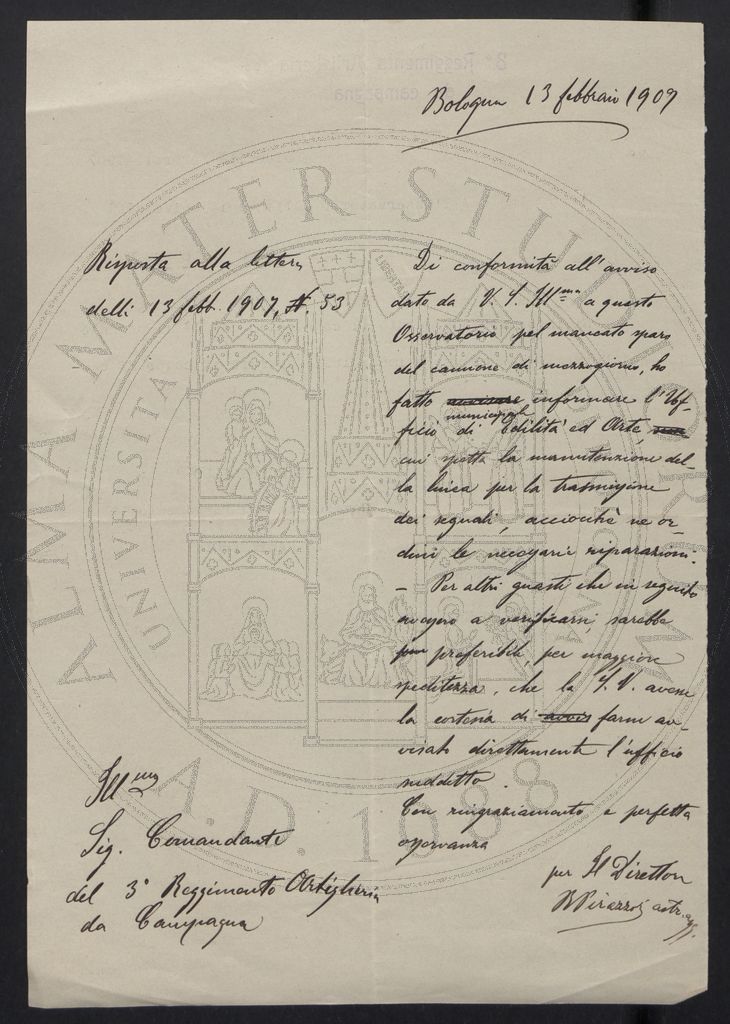 Bologna 13 febbraio 1907
Risposta alla lettera
delli 13 febb. 1907, N. 53
Di conformità all'avviso
dato da V. S. Ill.ma a questo
Osservatorio pel mancato sparo
del cannone di mezzogiorno, ho
fatto informare l'Uf-
ficio municipale di Edilità ed Arte,
cui spetta la manutenzione del-
la linea per la trasmissione
dei segnali, acciocchè ne or-
dini le necessarie riparazioni.
- Per altri guasti che in seguito
avessero a verificarsi, sarebbe
preferibile, per maggiore
speditezza, che la S. V. avesse
la cortesia di farne av-
visato direttamente l'ufficio
suddetto.
Con ringraziamento e perfetta
osservanza
per Il Direttore
Pirazzoli astr. agg.
Ill.mo
Sig. Comandante
del 3° Reggimento Artiglieria
da Campagna
ALMA MATER STUDIORUM
UNIVERSITA
A.D. 1088